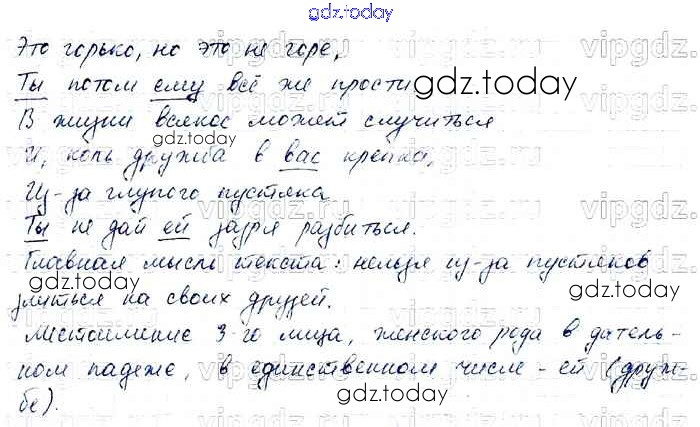 gdz.today
Это горько, но это не горе,
Ты потом ему всё же прости
gdz.today
В жизни всякое может случиться
gdz.today
И, коль дружба в вас крепка,
Из-за глупого пустяка
Ты не дай ей зазря разбиться.
gdz.today
Главная мысль текста: нельзя из-за пустяков
злиться на своих друзей.
gdz.today
Местоимение 3-го лица, женского рода в датель-
ном падеже, в единственном числе - ей (друж-
бе).
gdz.today